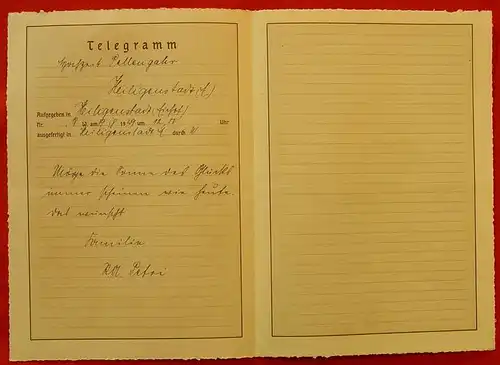 Telegramm
Hochzeit Pellengahr
Heiligenstadt (E)
Aufgegeben in Heiligenstadt (Eichsf)
Nr. 9 am 8 19 um 12 Uhr
ausgefertigt in Heiligenstadt E durch
Möge die Sonne des Glücks
immer scheinen wie heute.
das wünscht
Familie
Petri